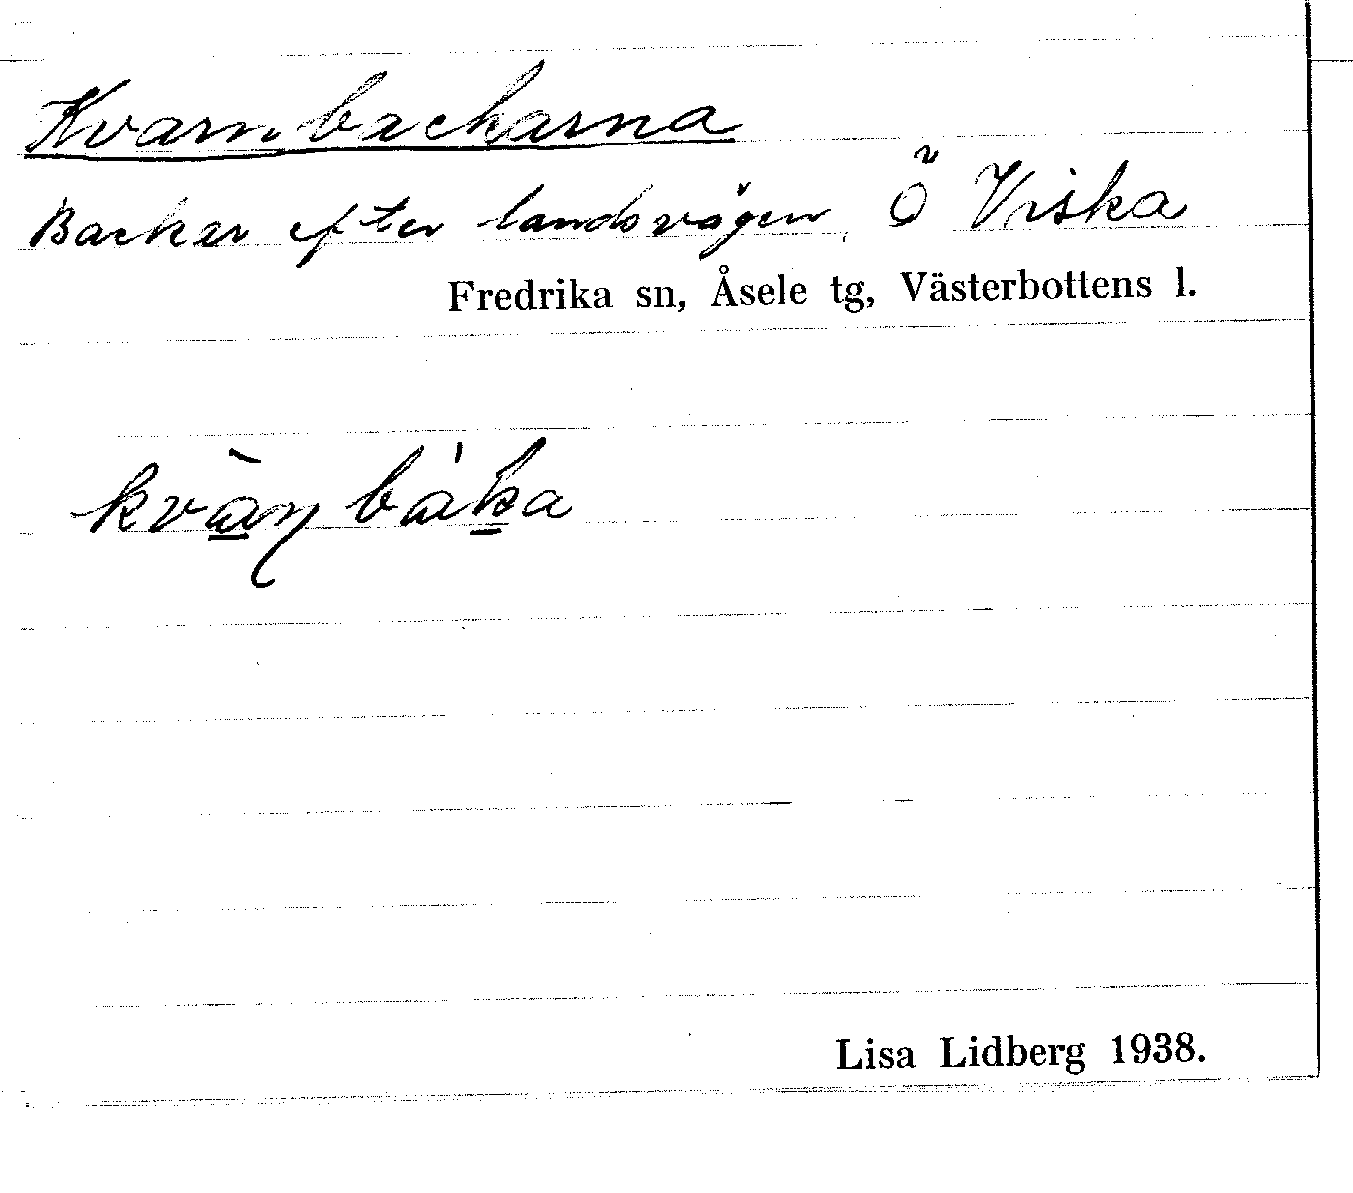 Kvarnbackarna
Backar efter landsvägen, Ö Viska
Fredrika sn, Åsele tg, Västerbottens l.
kvà̱ŋ bá'ḵa
Lisa Lidberg 1938.